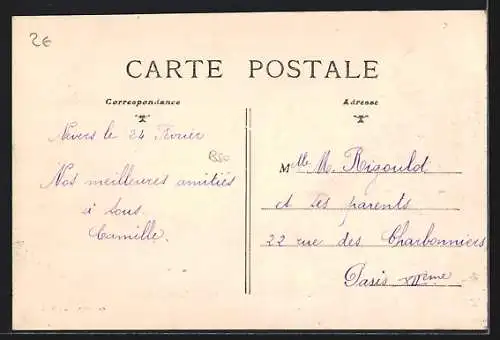 2€
CARTE POSTALE
Correspondance
Adresse
Nevers le 24 Février
B50
Nos meilleures amitiés
à tous.
Camille.
Mlle M. Rigould
et ses parents
22 rue des Charbonniers
Paris XIIème